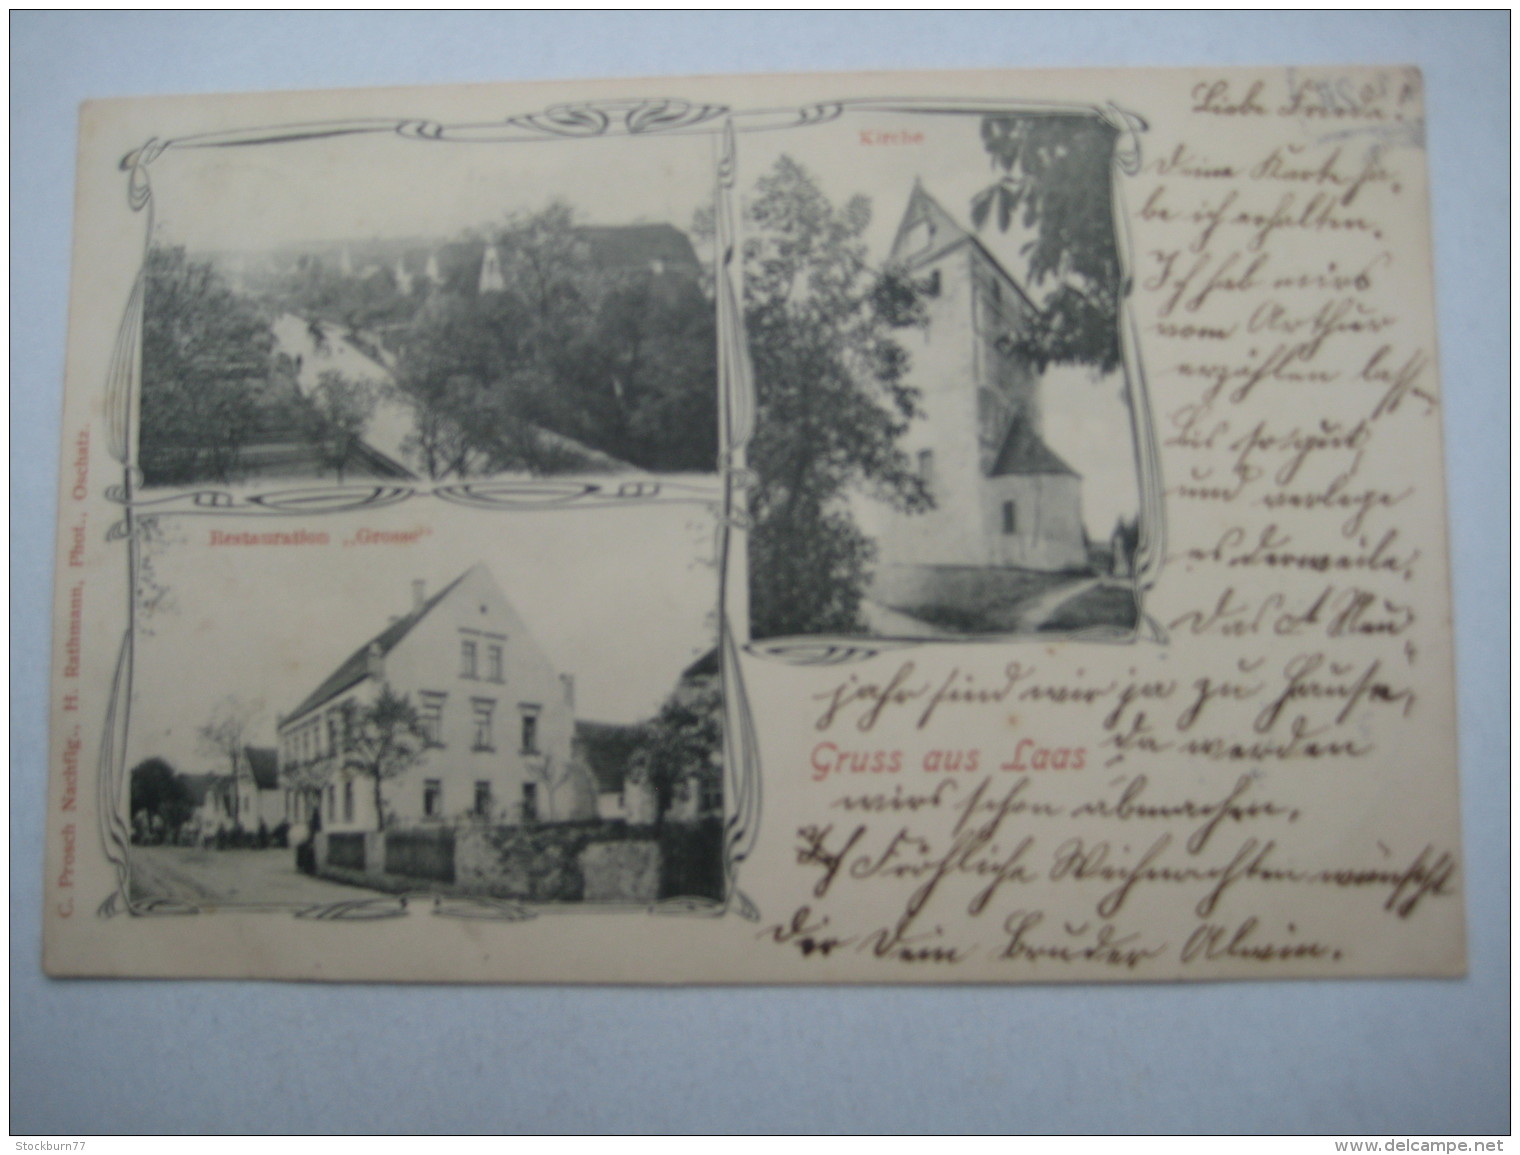 Kirche
Restauration „Grosse“
C. Prosch Nachflg., H. Rathmann, Phot., Oschatz.
Gruss aus Laas
Liebe Frieda!
Deine Karte ha-
be ich erhalten.
Ich hab mirs
vom Arthur
erzählen lassen
bis so gut,
und verlege
es derweile.
Das Neu-
jahr sind wir ja zu Hause,
da werden
wirs schon abmachen.
Ich Fröhliche Weihnachten wünscht
dir Dein Bruder Alwin.
Stockburn77
www.delcampe.net